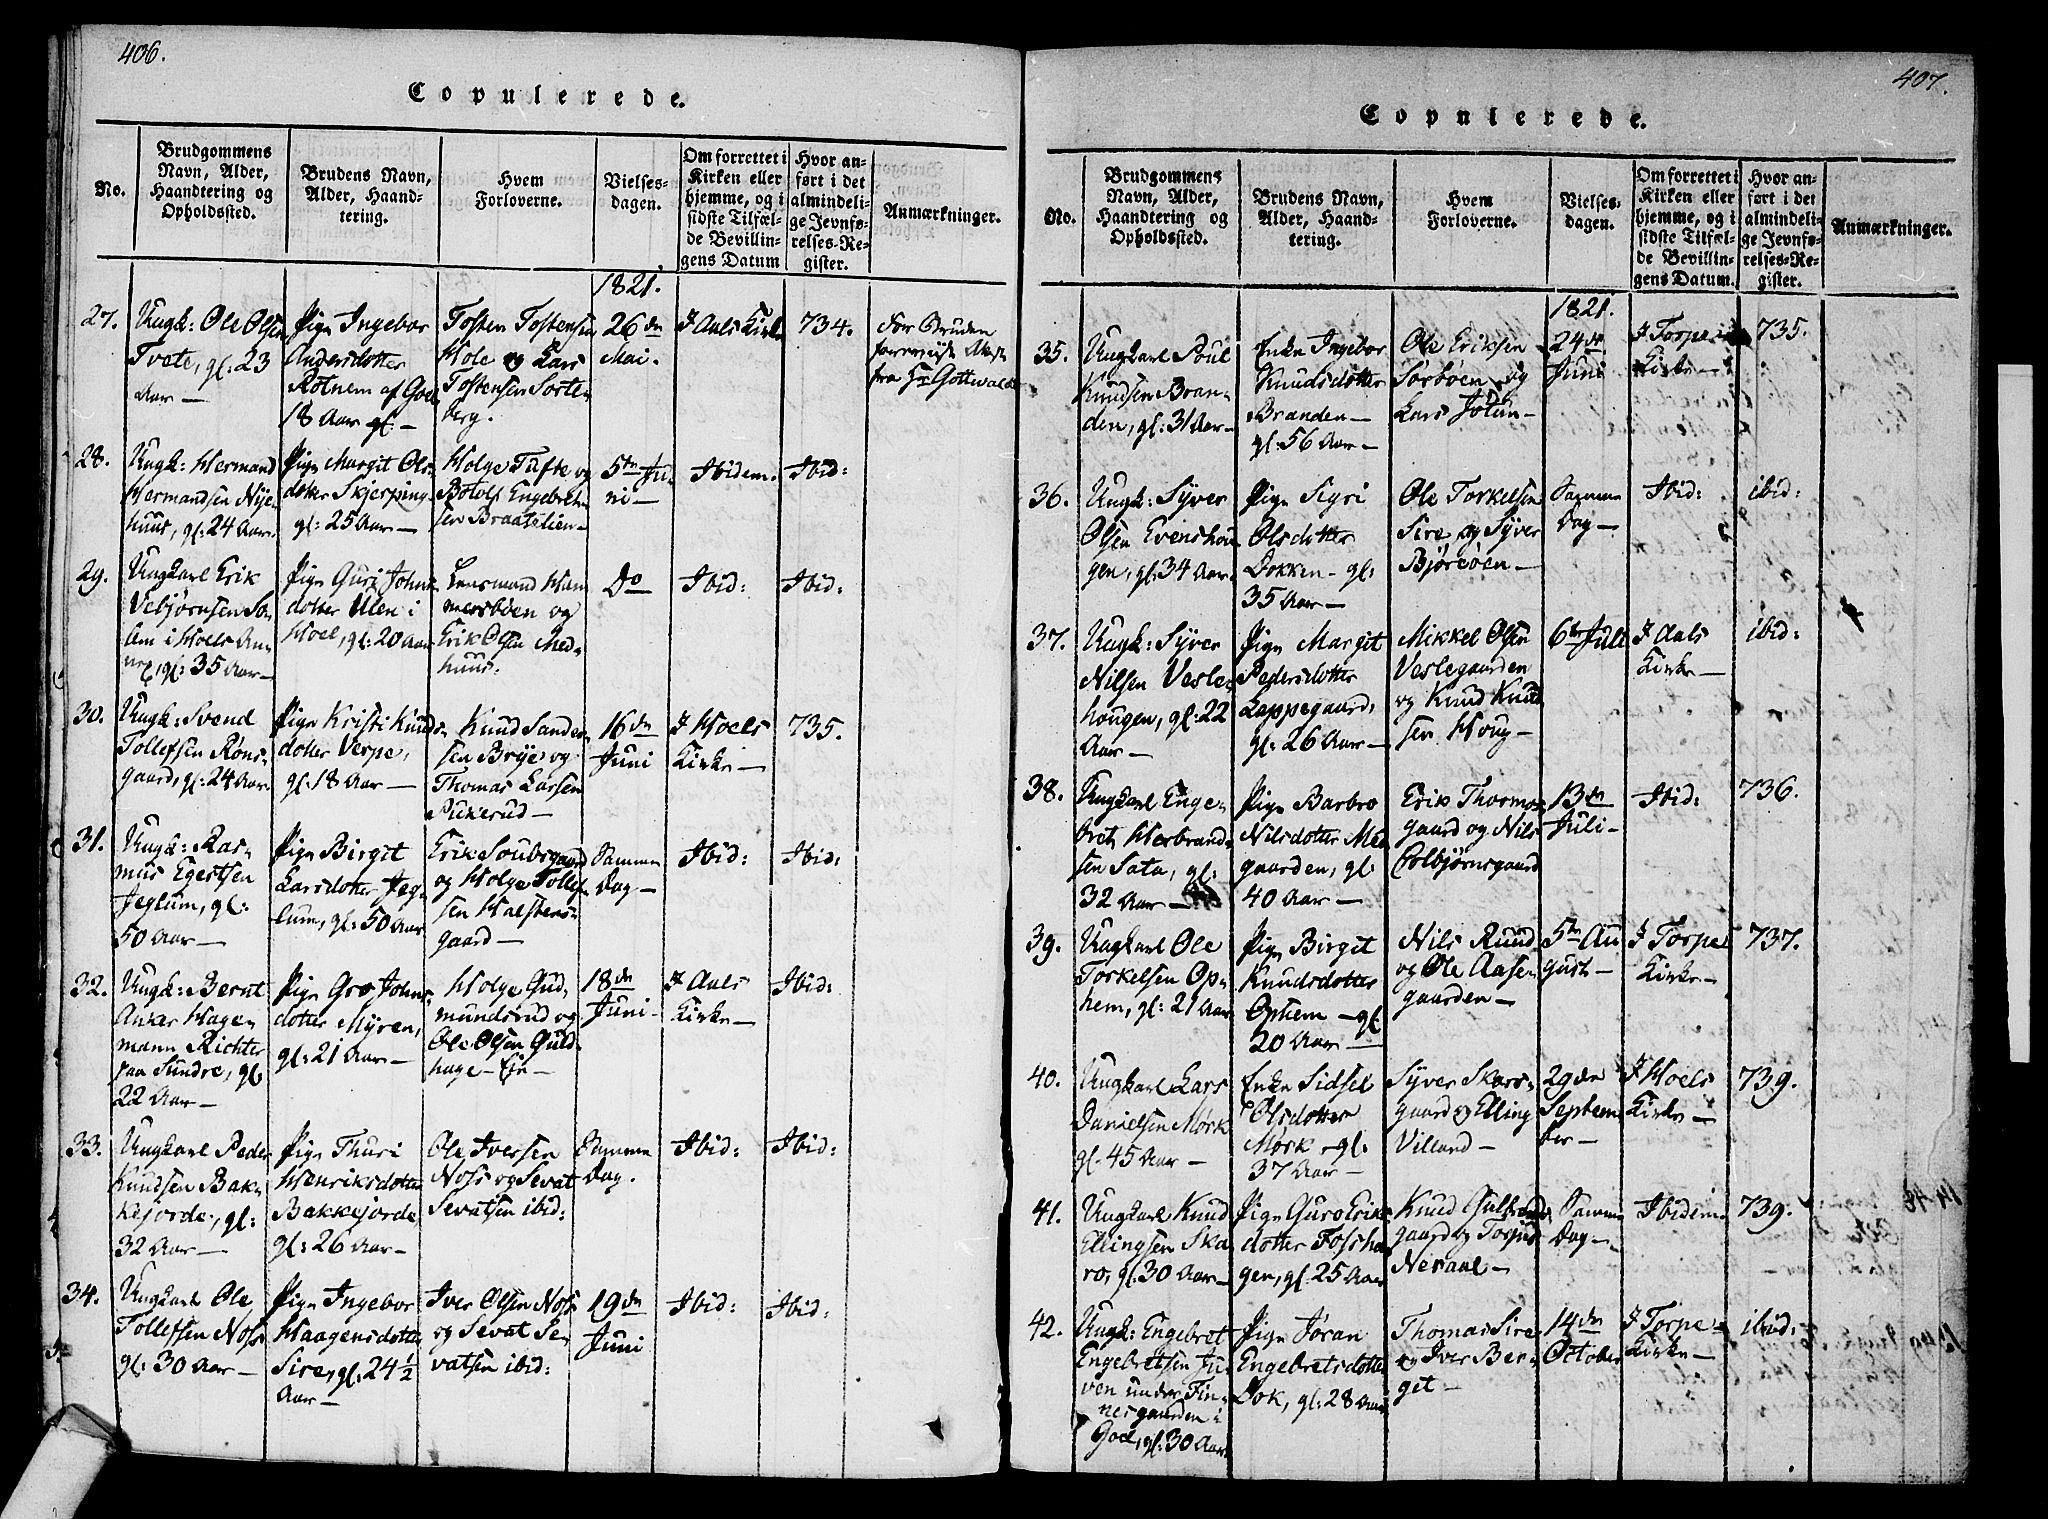 406.
Copulerede.
No.
Brudgommens
Navn, Alder,
Haandtering og
Opholdssted.
Brudens Navn,
Alder, Haand-
tering.
Hvem
Forloverne.
Vielses-
dagen.
Om forrettet i
Kirken eller
hjemme, og i
sidste Tilfæl-
de Bevillin-
gens Datum
Hvor an-
ført i det
almindeli-
ge Jevnfø-
relses-Re-
gister.
Anmærkninger.
1821.
27.
Ungk: Ole Olsen
Tvete, gl: 23
Aar —
Pige Ingebor
Andersdotter
Rotnem af Goel
18 Aar gl: —
Tosten Tostensen
Hole og Lars
Tostensen Sorte-
berg.
26de
Mai.
I Aals Kirke
734.
For Bruden
fra Hr Gottwaldt
28.
Ungk: Hermand
Hermandsen Nye-
huus, gl: 24 Aar.
Pige Margit Ols-
dotter Skjerping-
gl: 25 Aar —
Holge Tufte og
Botolf Engebret-
sen Braatelien —
5te Ju-
ni —
Ibidem.
Ibid:
29.
Ungkarl Erik
Vebjørnsen So-
lem i Hoels An-
nex, gl: 35 Aar —
Pige Guri Johns-
dotter Ulen i
Hoel, gl: 20 Aar
Lensmand Ham-
mersbøen og
Erik Olsen Med-
huus.
Do
Ibid:
Ibid:
30.
Ungk: Svend
Tollefsen Røns-
gaard, gl: 24 Aar
Pige Kristi Knuds-
dotter Verpe,
gl: 18 Aar —
Knud Sander-
sen Brye og
Thomas Larsen
Pukerud —
16de
Juni
I Hoels
Kirke —
735.
31.
Ungk: Ras-
mus Egertsen
Jeglum, gl:
50 Aar —
Pige Birgit
Larsdotter Jeg-
lum, gl: 50 Aar
Erik Soubsgaard
og Holge Tollef-
sen Halstens-
gaard —
Samme
Dag —
Ibid:
Ibid:
32.
Ungk: Bernt
Anker Hage-
mann Richter
paa Sundre, gl:
22 Aar —
Pige Gro Johns-
dotter Myren,
gl: 21 Aar —
Holge Gud-
mundsrud og
Ole Olsen Guld-
hage — Eje —
18de
Juni —
I Aals
Kirke —
Ibid:
33.
Ungkarl Peder
Knudsen Bak-
kejorde, gl:
32 Aar —
Pige Thuri
Henriksdotter
Bakkejorde
gl: 26 Aar —
Ole Iversen
Noss og Sevat
Sevatsen ibid:
Samme
Dag.
Ibid:
Ibid:
34.
Ungkarl Ole
Tollefsen Noss
gl: 30 Aar —
Pige Ingebor
Haagensdotter
Sire, gl: 24 1/2
Aar —
Iver Olsen Noss
og Sevat Se-
vatsen ibid:
19de
Juni
Ibid:
Ibid:
407.
Copulerede.
No.
Brudgommens
Navn, Alder,
Haandtering og
Opholdssted.
Brudens Navn,
Alder, Haand-
tering.
Hvem
Forloverne.
Vielses-
dagen.
Om forrettet i
Kirken eller
hjemme, og i
sidste Tilfæl-
de Bevillin-
gens Datum.
Hvor an-
ført i det
almindeli-
ge Jevnfø-
relses-Re-
gister.
Anmærkninger.
1821.
35.
Ungkarl Poul
Knudsen Bran-
den, gl: 31 Aar —
Enke Ingebor
Knudsdotter
Branden —
gl: 56 Aar —
Ole Eriksen
Sorbøen og
Lars Jotun —
24de
Juni
I Torpe
Kirke —
735.
36.
Ungk: Syver
Olsen Evenshou-
gen, gl: 34 Aar.
Pige Sigri
Olsdotter
Dokken — gl:
35 Aar —
Ole Torkelsen
Sire og Syver
Bjørebøen —
Samme
Dag —
Ibid:
ibid:
37.
Ungk: Syver
Nilsen Vesle-
hougen, gl: 22
Aar —
Pige Margit
Pedersdotter
Lappegaard,
gl: 26 Aar —
Mikkel Olsen
Veslegaarden
og Knud Knud-
sen Houg —
6te Juli
I Aals
Kirke —
ibid:
38.
Ungkarl Enge-
bret Herbrand-
sen Sata, gl:
32 Aar —
Pige Barbro
Nilsdotter Med-
gaarden, gl:
40 Aar —
Erik Thormos-
gaard og Nils
Colbjørnsgaard
13de
Juli —
Ibid:
736.
39.
Ungkarl Ole
Torkelsen Op-
hem, gl: 21 Aar
Pige Birgit
Knudsdotter
Ophem — gl:
20 Aar —
Nils Ruud
og Ole Aase-
gaarden —
5te Au-
gust —
I Torpe
Kirke —
737.
40.
Ungkarl Lars
Danielsen Mørk
gl. 45 Aar —
Enke Sidsel
Olsdotter
Mørk — gl:
37 Aar —
Syver Skars-
gaard og Elling
Villand —
29de
Septem-
ber —
I Hoels
Kirke —
739.
41.
Ungkarl Knud
Ellingsen Ska-
ro, gl: 30 Aar —
Pige Guro Eriks-
dotter Fossha-
gen, gl: 25 Aar
Knud Gulbrands-
gaard og Torgius
Neraal —
Samme
Dag —
Ibidem.
739.
42.
Ungk: Engebret
Engebretsen Ju-
ven under Fin-
nesgaarden i
God, gl: 30 Aar.
Pige Jøran
Engebretsdotter
Dok, gl: 28 Aar
Thomas Sire
og Iver Ber-
get —
14de
October
I Torpe
Kirke —
ibid: